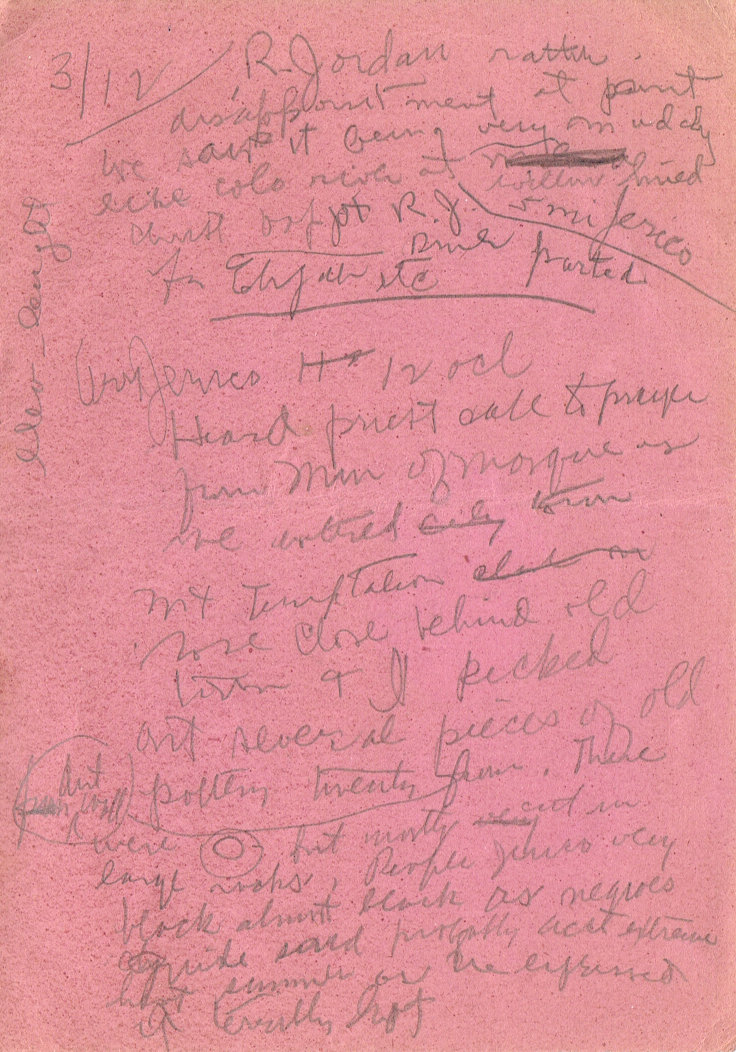 3/12 R. Jordan rather
disappointment at point
we saw it being very muddy
like colo river at
Christ bapt pt R. J. 5 mi Jerico
for Elijah etc river parted
Arr Jerico 12 ocl
Heard priest call to prayer
from Min of mosque as
we entered city town
Mt Temptation
rose close behind old
town & I picked
out several pieces of old
pottery from. There
out wall
were but mostly in
large rooks, People Jerico very
black almost black as negroes
Guide said probably acct extreme
hot summer or he expressed
it terribly hot